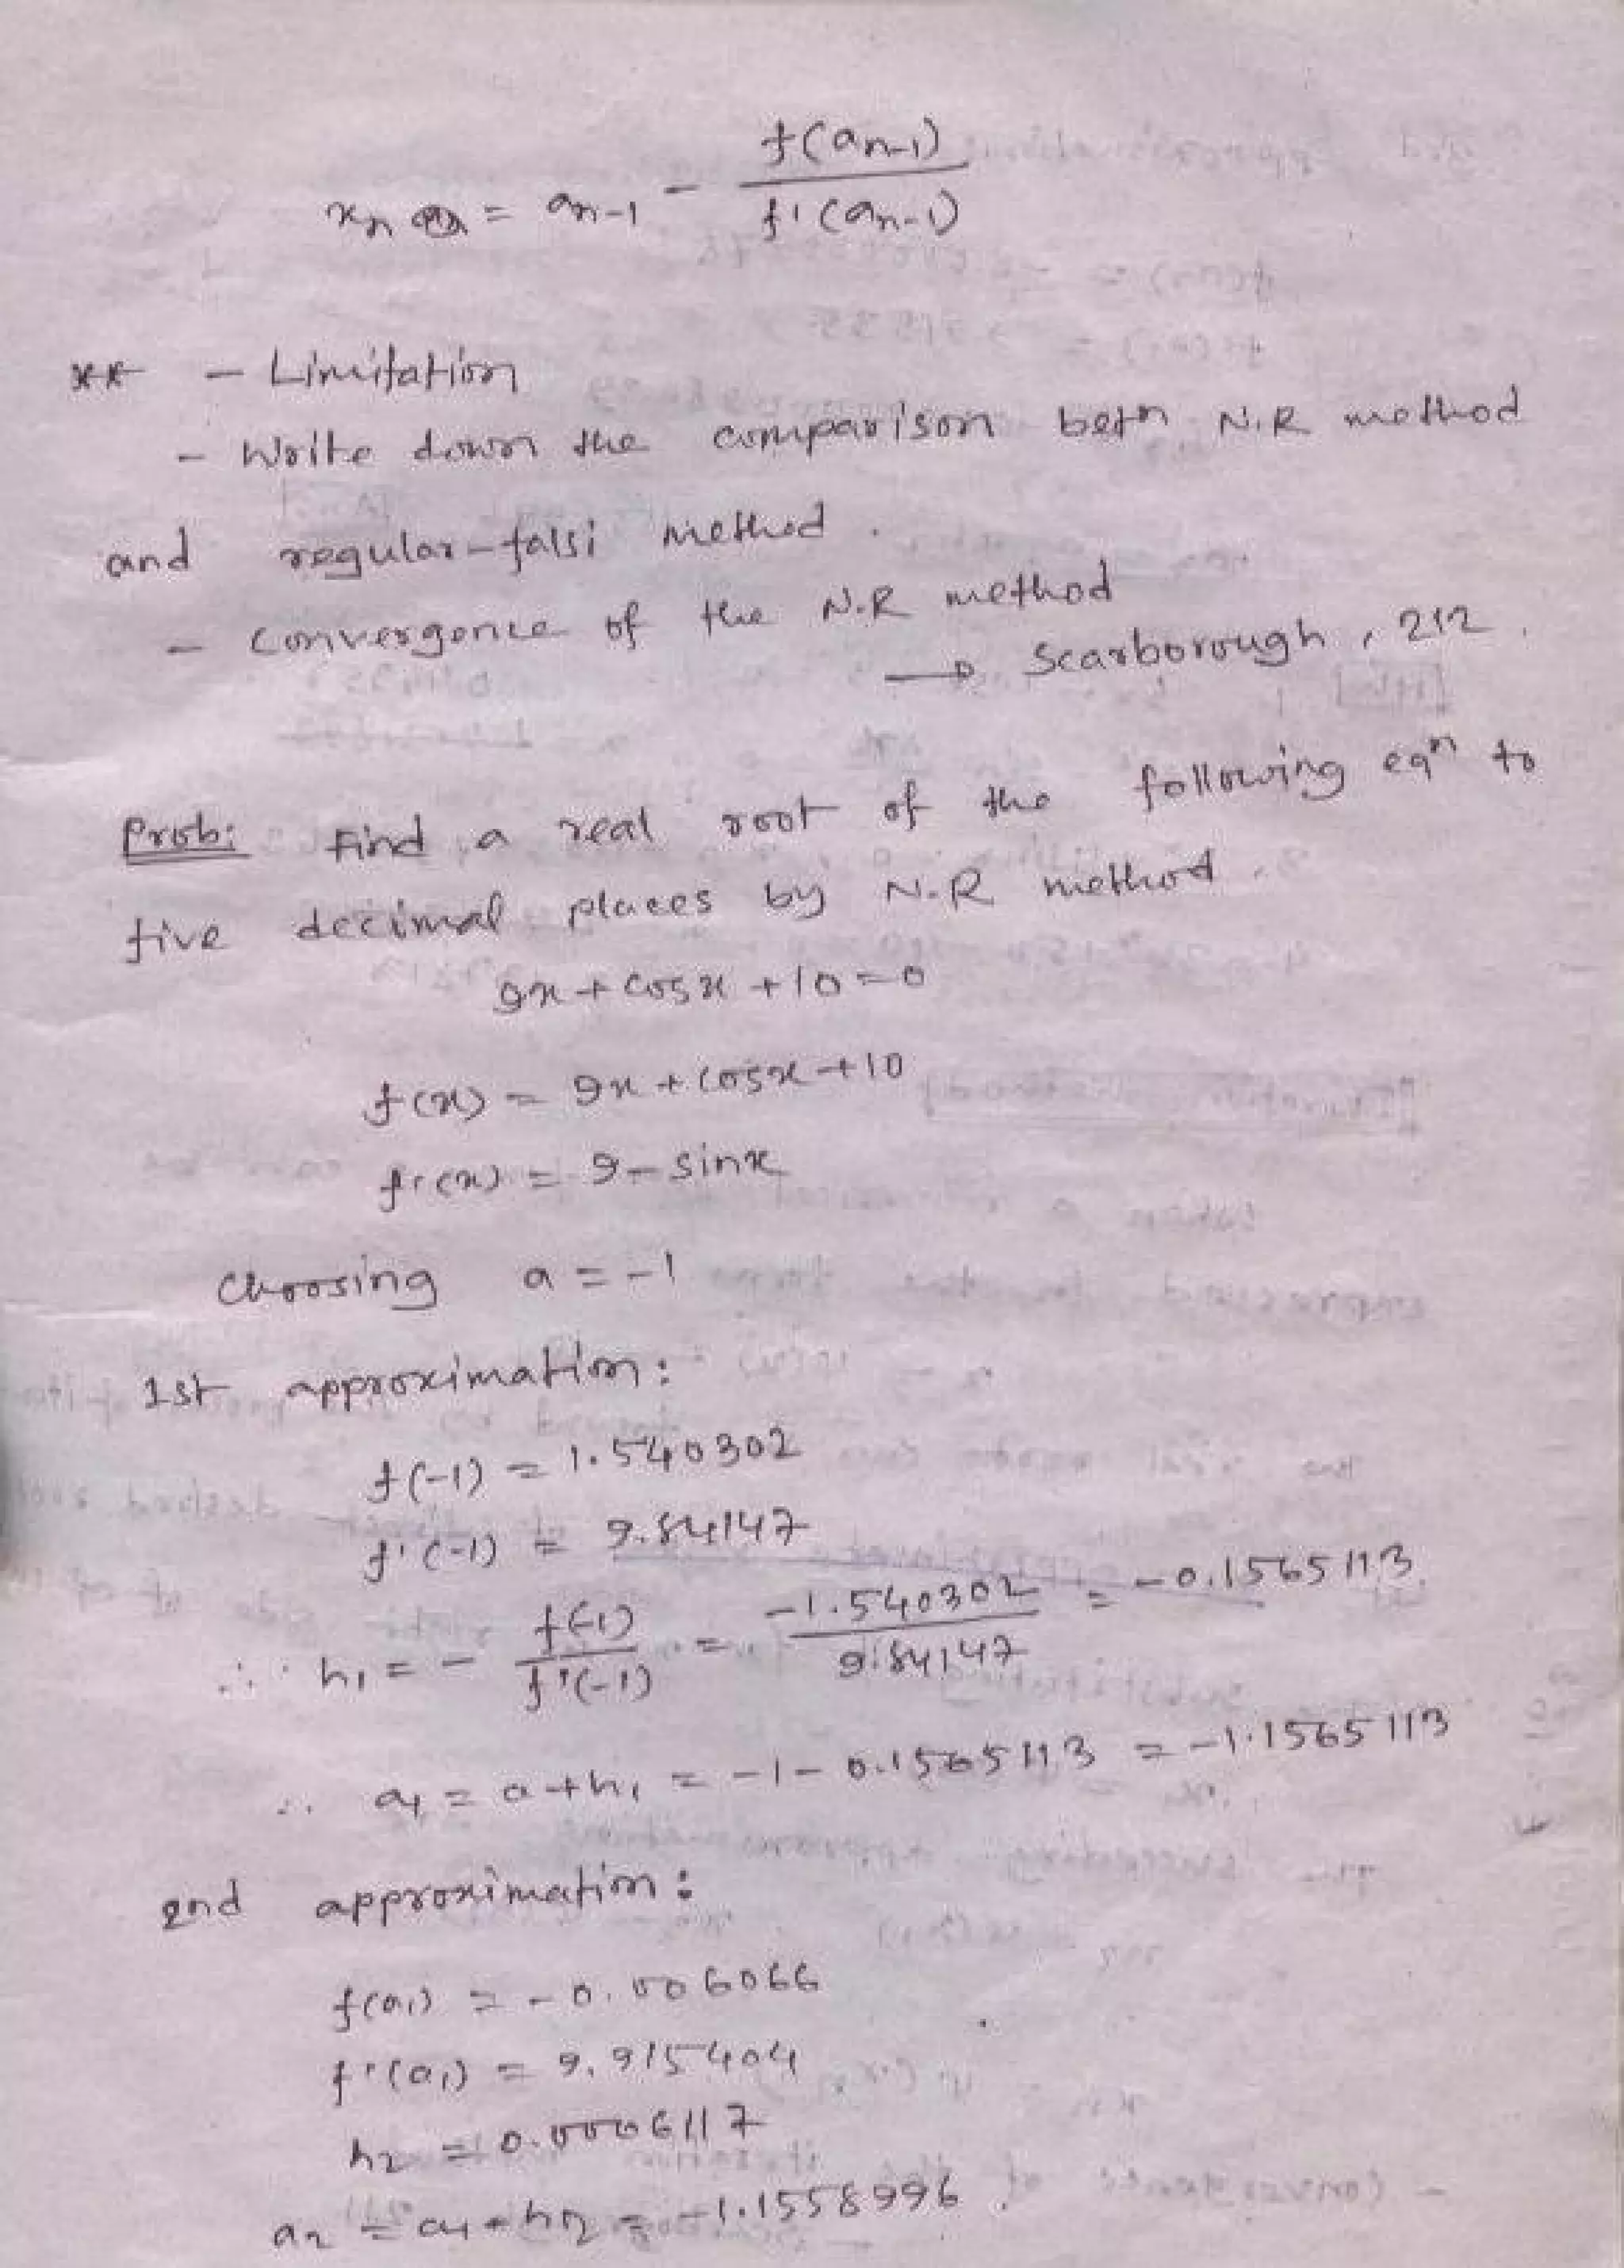 xₙ = aₙ₋₁ - f(aₙ₋₁) / f'(aₙ₋₁)
** - Limitation
- Write down the comparison betn N.R method
and regular-falsi method.
- Convergence of the N.R method
→ Scarborough, 212.
Prob: Find a real root of the following eqⁿ to
five decimal places by N.R method.
9x + cosx + 10 = 0
f(x) = 9x + cosx + 10
f'(x) = 9 - sinx
Choosing a = -1
1st approximation:
f(-1) = 1.540302
f'(-1) = 9.84147
∴ h₁ = - f(-1) / f'(-1) = -1.540302 / 9.84147 = -0.1565113
∴ a₁ = a + h₁ = -1 - 0.1565113 = -1.1565113
2nd approximation:
f(a₁) = -0.006066
f'(a₁) = 9.915404
h₂ = 0.0006117
a₂ = a₁ + h₂ = -1.1558996